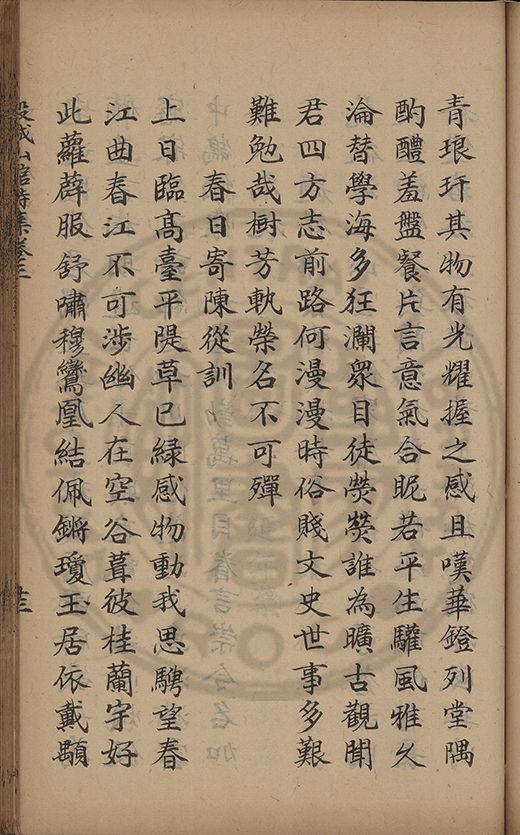 青琅玕其物有光耀握之感且嘆華鐙列堂隅
酌醴羞盤餐片言意氣合眤若平生驩風雅久
淪替學海多狂瀾衆目徒熒熒誰為曠古觀聞
君四方志前路何漫漫時俗賤文史世事多艱
難勉哉樹芳軌榮名不可殫
春日寄陳從訓
上日臨高臺平隄草已綠感物動我思騁望春
江曲春江不可涉幽人在空谷葺彼桂蘭宇好
此蘿薜服舒嘯穆鸞凰結佩鏘瓊玉居依戴顒
山館詩集卷三